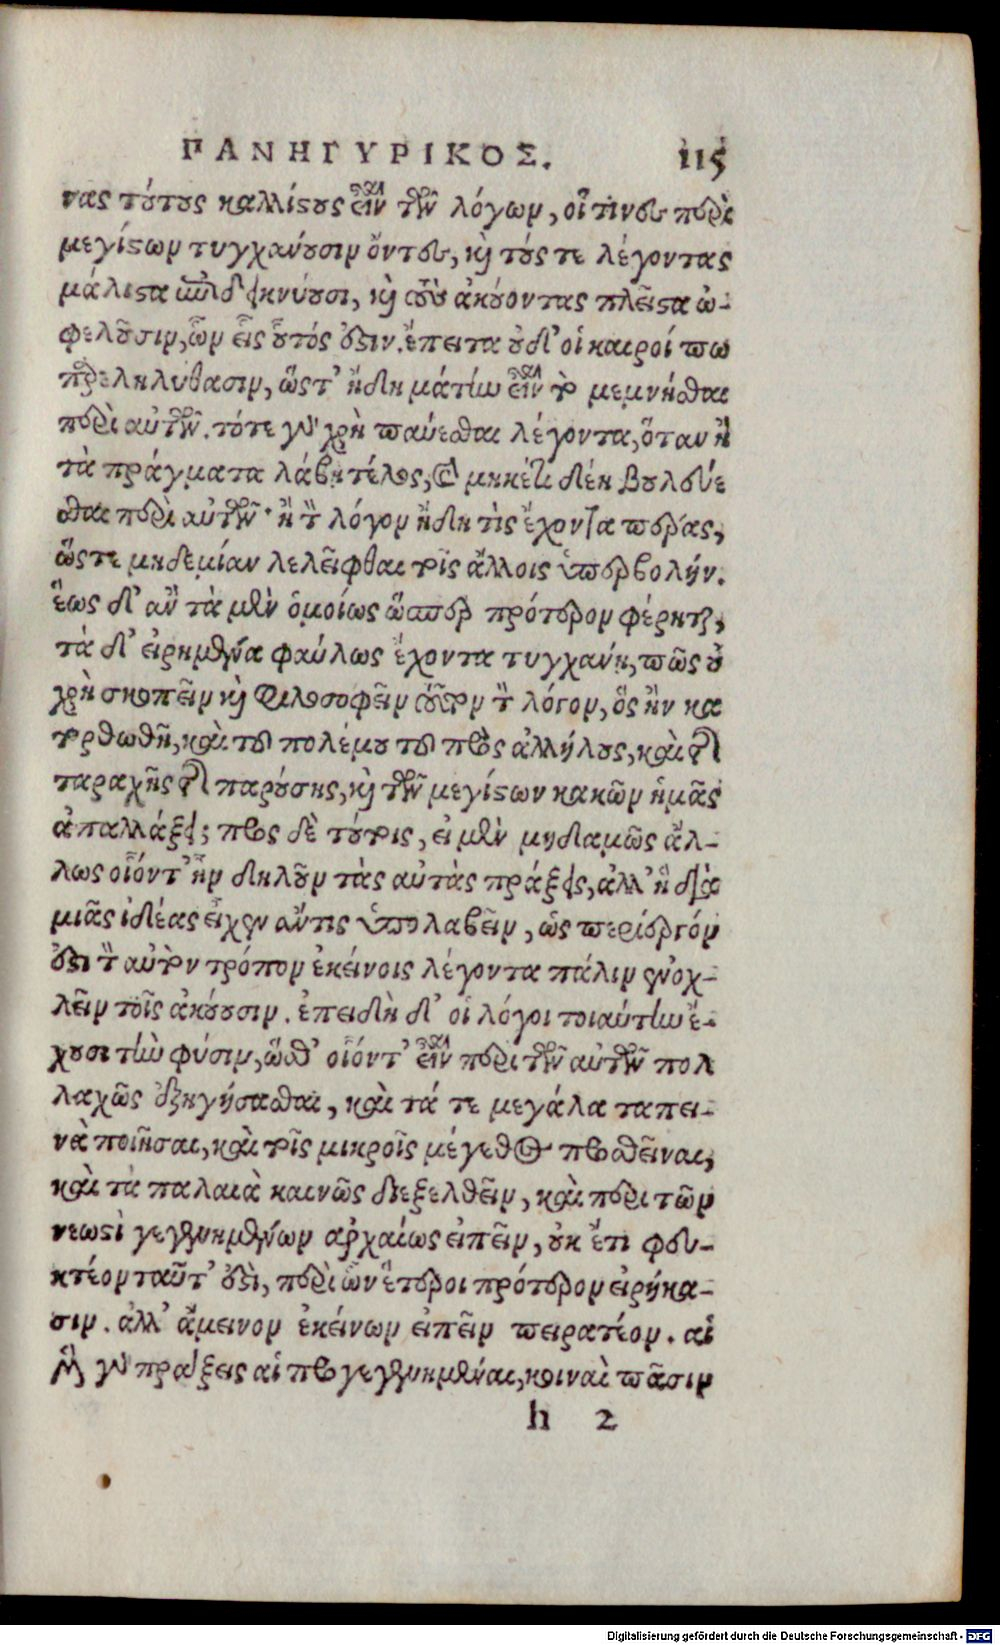 ΠΑΝΗΓΥΡΙΚΟΣ. 115
νας τούτους καλλίστους εἶναι τῶν λόγων, οἵτινες περὶ
μεγίστων τυγχάνουσιν ὄντες, καὶ τούς τε λέγοντας
μάλιστα ἐπιδεικνύουσι, καὶ τοὺς ἀκούοντας πλεῖστα ὠ-
φελοῦσιν, ὧν εἷς οὗτός ἐστιν. ἔπειτα οὐδ' οἱ καιροί πω
παρεληλύθασιν, ὥστ' ἤδη μάτην εἶναι τὸ μεμνῆσθαι
περὶ αὐτῶν. τότε γὰρ χρὴ παύεσθαι λέγοντα, ὅταν ἢ
τὰ πράγματα λάβῃ τέλος, καὶ μηκέτι δέῃ βουλεύε
σθαι περὶ αὐτῶν· ἢ τὸν λόγον ἤδη τὶς ἔχοντα πέρας,
ὥστε μηδεμίαν λελεῖφθαι τοῖς ἄλλοις ὑπερβολήν.
ἕως δ' ἂν τὰ μὲν ὁμοίως ὥσπερ πρότερον φέρηται,
τὰ δ' εἰρημένα φαύλως ἔχοντα τυγχάνῃ, πῶς οὐ
χρὴ σκοπεῖν καὶ φιλοσοφεῖν τοῦτον τὸν λόγον, ὃς ἢν κα
τορθωθῇ, καὶ τοῦ πολέμου τοῦ πρὸς ἀλλήλους, καὶ τῆς
ταραχῆς τῆς παρούσης, καὶ τῶν μεγίστων κακῶν ἡμᾶς
ἀπαλλάξει; πρὸς δὲ τούτοις, εἰ μὲν μηδαμῶς ἄλ-
λως οἷόντ' ἦν δηλοῦν τὰς αὐτὰς πράξεις, ἀλλ' ἢ διὰ
μιᾶς ἰδέας εἶχεν ἄν τις ὑπολαβεῖν, ὡς περίεργόν
ἐστι τὸν αὐτὸν τρόπον ἐκείνοις λέγοντα πάλιν ἐνοχ-
λεῖν τοῖς ἀκούουσιν. ἐπειδὴ δ' οἱ λόγοι τοιαύτην ἔ-
χουσι τὴν φύσιν, ὥσθ' οἷόντ' εἶναι περὶ τῶν αὐτῶν πολ
λαχῶς ἐξηγήσασθαι, καὶ τά τε μεγάλα ταπει-
νὰ ποιῆσαι, καὶ τοῖς μικροῖς μέγεθος προσθεῖναι,
καὶ τὰ παλαιὰ καινῶς διεξελθεῖν, καὶ περὶ τῶν
νεωστὶ γεγενημένων ἀρχαίως εἰπεῖν, οὐκ ἔτι φευ-
κτέον ταῦτ' ἐστὶ, περὶ ὧν ἕτεροι πρότερον εἰρήκα-
σιν. ἀλλ' ἄμεινον ἐκείνων εἰπεῖν πειρατέον. αἱ
μὲν γὰρ πράξεις αἱ προγεγενημέναι, κοιναὶ πᾶσιν
h 2
Digitalisierung gefördert durch die Deutsche Forschungsgemeinschaft - DFG